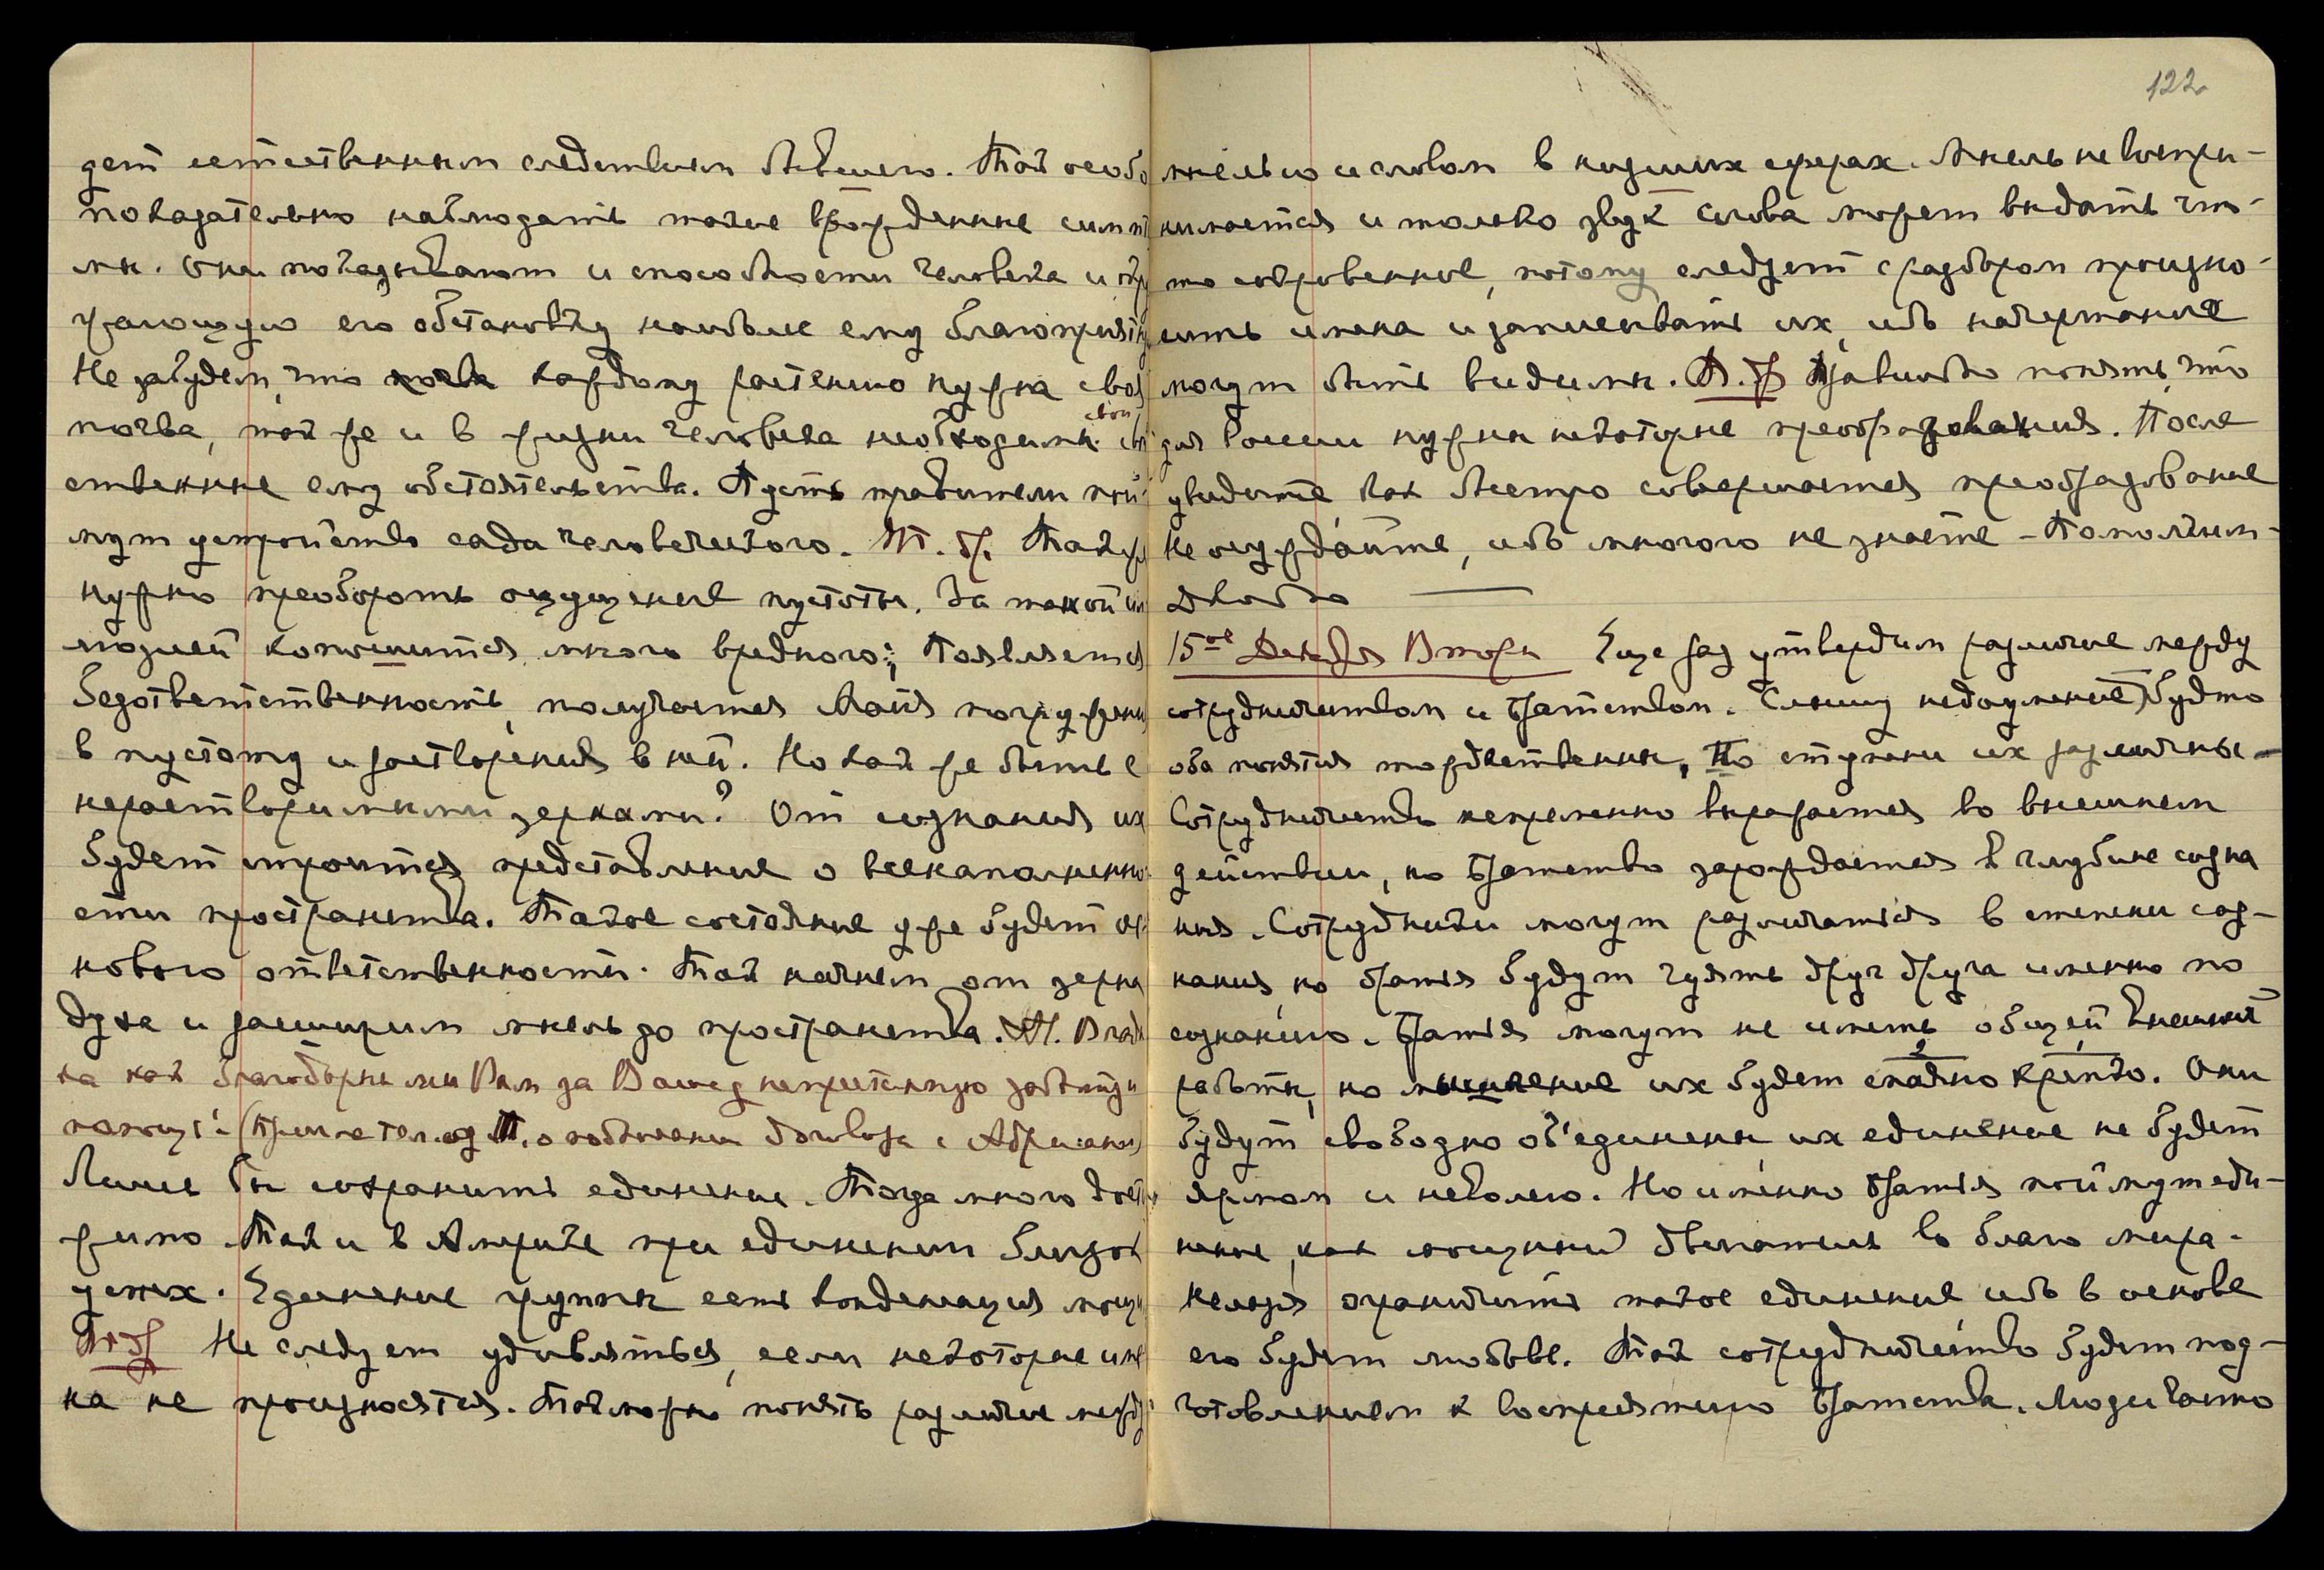 дет естественным следствием бывшего. Так особо
показательно наблюдать такие врожденные симпто
мы. Они показывают и способности человека и окру
жающую его обстановку наиболее ему благоприятну
Не забудем, что каждому растению нужна своя
почва, так же и в жизни человека необходимы свои
ственные ему обстоятельства. Пусть правители пой
мут устройство сада человеческого. Так же
нужно преобороть ощущение пустоты. За такой
люзией копошится много вредного; Появляется
безответственность, получается боязнь погружени
в пустоту и растворения в ней. Но как же быть с
нерастворимыми зернами? От сознания их
будет строиться представление о всенаполненно
сти пространства. Такое состояние уже будет ос
новою ответственности. Так начнем от зерна
духа и расширим мысль до пространства. Влады
ка как благодарны мы Вам за Вашу непрестанную заботу и
помощь! (Пришла тел. од о подписании договора с Абрамом)
Лишь бы сохранить единение. Тогда много дости
жимо. Так и в Америке при единении близок
успех. Единение группы есть конденсация мощи
Не следует удивляться, если некоторые име
на не произносятся. Так можно понять различие между
122
мыслью и словом в низших сферах. Мысль не воспри-
нимается и только звук слова может выдать что-
то сокровенное, потому следует с разбором произно-
сить имена и записывать их, ибо начертания
могут быть видимы. Правильно понять, что
для России нужны некоторые преобразования. После
увидите, как быстро совершается преобразование
Не осуждайте, ибо многого не знаете - Помолчим -
Довольно
15ое Декабря Вторн Еще раз утвердим различие между
сотрудничеством и Братством. Слышу недоумение, будто
оба понятия тождественны, Но ступени их различны -
Сотрудничество непременно выражается во внешнем
действии, но Братство зарождается в глубине созна
ния. Сотрудники могут различаться в степени соз-
нания, но братья будут чуять друг друга именно по
сознанию. Братья могут не иметь общей внешней
работы, но мышление их будет спаяно крепко. Они
будут свободно об'единены, их единение не будет
ярмом и неволею. Но именно братья поймут еди-
нение, как мощный двигатель во благо мира.
Нельзя ограничить такое единение ибо в основе
его будет любовь. Так сотрудничество будет под-
готовлением к восприятию Братства. Люди часто